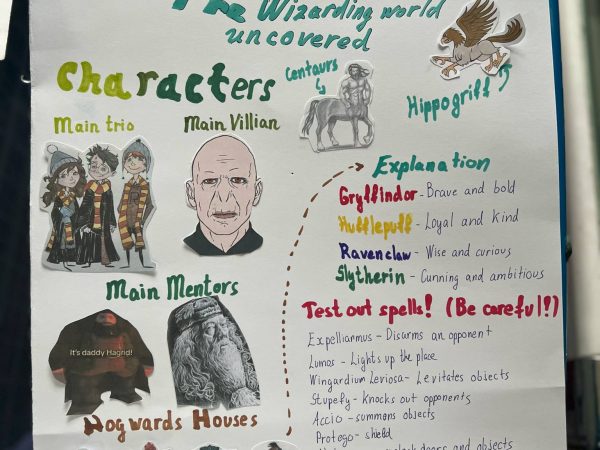 The Wizarding world
uncovered
Characters
Centaurs
Hippogriff
Main trio
Main Villian
Explanation
Gryffindor - Brave and bold
Hufflepuff - Loyal and kind
Ravenclaw - Wise and curious
Slytherin - Cunning and ambitious
Main Mentors
It's daddy Hagrid!
Hogwards Houses
Test out spells! (Be careful!?)
Expelliarmus - Disarms an opponent
Lumos - Lights up the place
Wingardium Leviosa - Levitates objects
Stupefy - Knocks out opponents
Accio - summons objects
Protego - shield
doors and objects